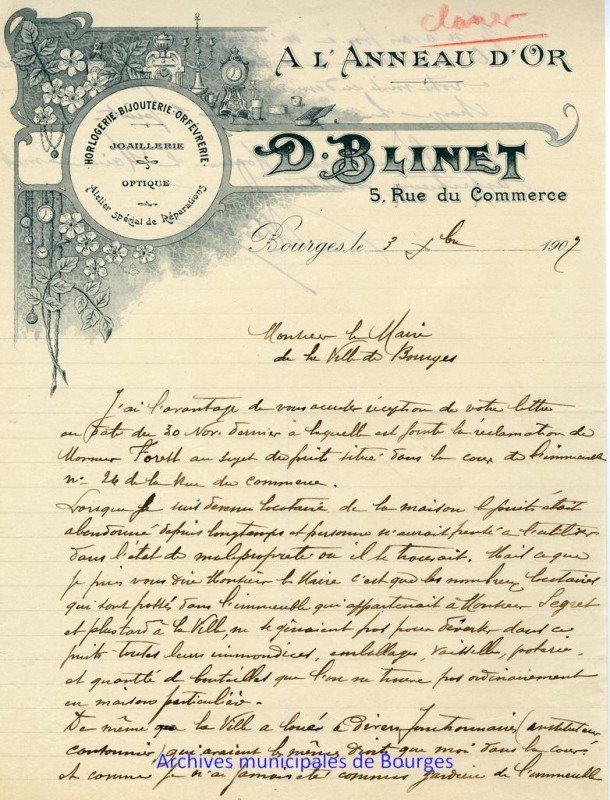 classer
A L'ANNEAU D'OR
HORLOGERIE·BIJOUTERIE·ORFÈVRERIE·
JOAILLERIE
OPTIQUE
Atelier Spécial de Réparations
D. BLINET
5, Rue du Commerce
Bourges, le 3 Xbre 1907
Monsieur le Maire
de la Ville de Bourges
J'ai l'avantage de vous accuser réception de votre lettre
en date du 30 Nov. dernier à laquelle est jointe la réclamation de
Monsieur Forest au sujet du puits situé dans la cour de l'immeuble
n° 24 de la Rue du commerce.
Lorsque je suis devenu locataire de la maison le puits était
abandonné depuis longtemps et personne n'aurait pensé à l'utiliser
dans l'état de malpropreté où il se trouvait. Mais ce que
je puis vous dire Monsieur le Maire c'est que les nombreux locataires
qui sont passés dans l'immeuble qui appartenait à Monsieur Segret
et plus tard à la Ville, ne se gênaient pas pour déverser dans ce
puits toutes leurs immondices, emballages, vaisselle, poterie,
et quantité de bouteilles que l'on ne trouve pas ordinairement
en maisons particulière.
De même que la Ville a loué à divers fonctionnaires (instituteur
cantonnier) qui avaient les mêmes droits que moi dans la cour
et comme je n'ai jamais été commis gardien de l'immeuble
Archives municipales de Bourges